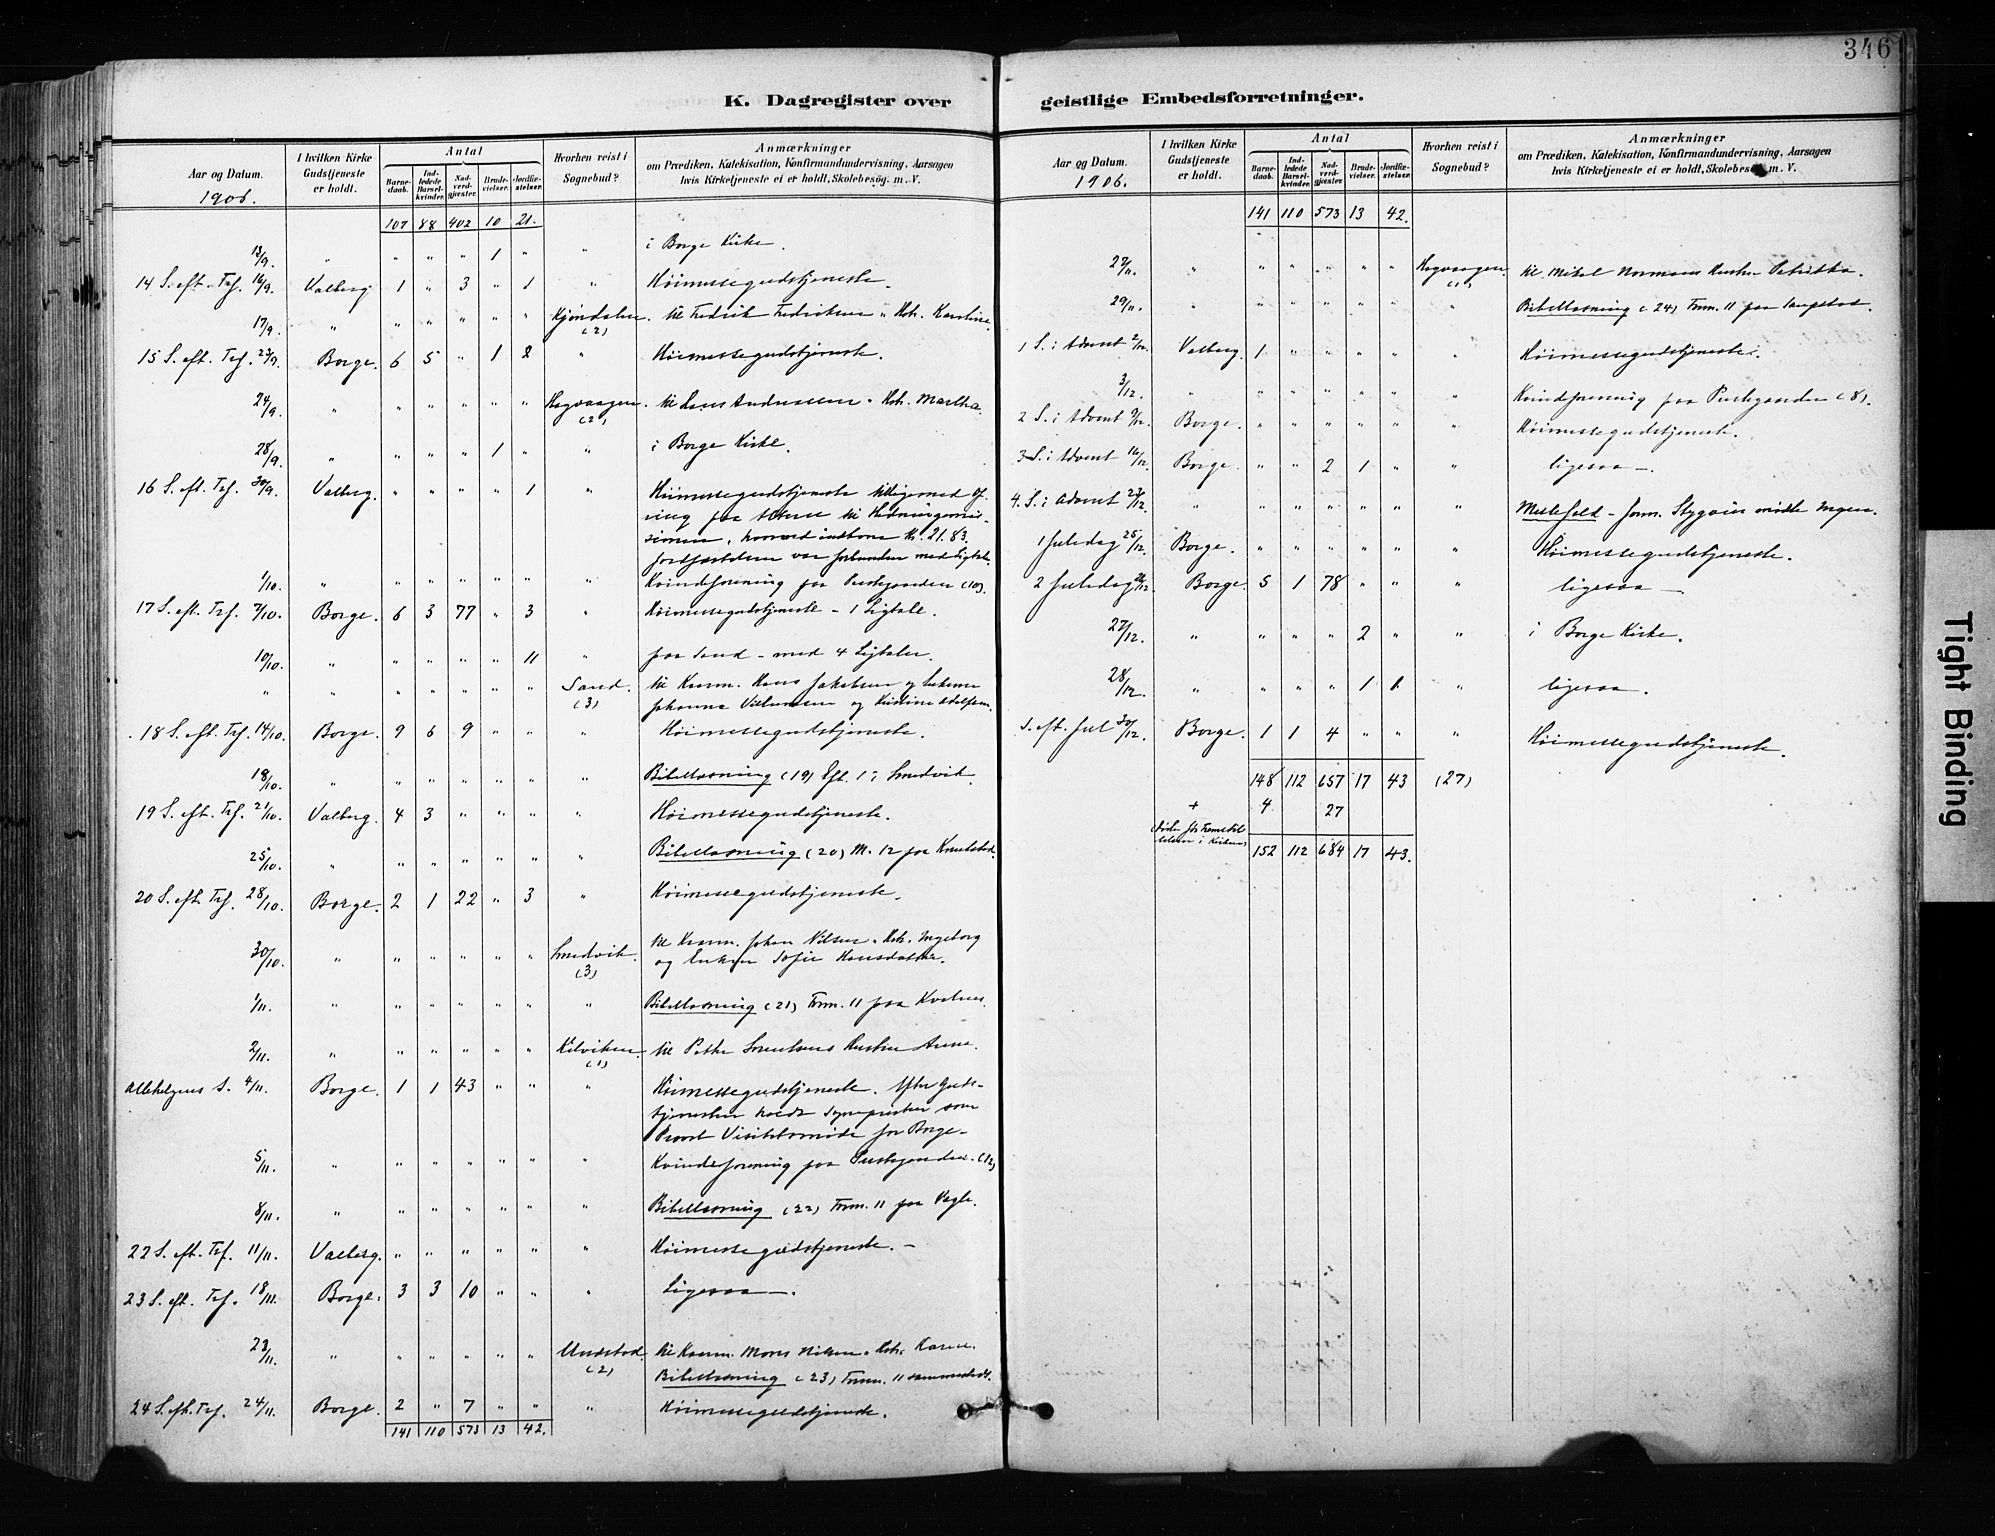 346
K. Dagregister over
geistlige Embedsforretninger.
Aar og Datum.
1906.
I hvilken Kirke Gudstjeneste er holdt.
Antal
Barnedaab.
Indledede Barselkvinder.
Nadverdgjester.
Brudevielser.
Jordfæstelser.
Hvorhen reist i Sognebud?
Anmærkninger
om Prædiken, Katekisation, Konfirmandundervisning, Aarsagen
hvis Kirketjeneste ei er holdt, Skolebesøg. m. V.
107 88 402 10 21.
13/9. " " " " 1 " " i Borge Kirke.
14 S. eft. Tref. 16/9. Valberg 1 " 3 " 1 " Høimessegudstjeneste.
17/9. " " " " " " (2) til Fredrik Fredriksen " Hst. Karoline.
15 S. eft. Tref. 23/9. Borge. 6 5 " 1 2 " Høimessegudstjeneste.
24/9. " " " " " " Hagvaagen (2) til Andreassen " Hst. Martha.
28/9. " " " " 1 " " i Borge Kirke.
16 S. eft. Tref. 30/9. Valberg. " " " " 1 " Høimessegudstjeneste tilligemed of-
ring paa Alteret til Hedningemis-
sionen, hvorved indkom Kr. 21.83.
Jordfæstelsen var forbunden med Ligtale.
1/10. " " " " " " " Kvindeforening paa Prestegaarden (10).
17 S. eft. Tref. 7/10. Borge. 6 3 77 " 3 " Høimessegudstjeneste - 1 Ligtale.
10/10. " " " " " 11 " paa Sand - med 4 Ligtaler.
" " " " " " " Sand. (3) til Kaarm. Hans Jakobsen og Enkerne
Johanna og Kristine Adolfsen.
18 S. eft. Tref. 14/10. Borge. 9 6 9 " " " Høimessegudstjeneste.
18/10. " " " " " " " Bibellæsning (19) Eft. 1 i Smedvik.
19 S. eft. Tref. 21/10. Valberg. 4 3 " " " " Høimessegudstjeneste.
25/10. " " " " " " " Bibellæsning (20) M. 12 paa Knutstad.
20 S. eft. Tref. 28/10. Borge. 2 1 22 " 3 " Høimessegudstjeneste.
30/10. " " " " " " Smedvik. (3) til Kaarm. Johan Nilsen " Hst. Ingeborg
og Enken Sofie Hansdatter.
1/11. " " " " " " " Bibellæsning (21) Form. 11 paa Kvalnes.
2/11. " " " " " " Kilviken. (1) til Petter Hustru Anne.
Allehelgens S. 4/11. Borge. 1 1 43 " " " Høimessegudstjeneste. Efter Guds-
tjenesten holdt Sognepresten som
Provst Visitatsmøde for Borge.
5/11. " " " " " " " Kvindeforening paa Prestegaarden. (12)
8/11. " " " " " " " Bibellæsning (22) Form. 11 paa Vagle.
22 S. eft. Tref. 11/11. Valberg. " " " " " " Høimessegudstjeneste. -
23 S. eft. Tref. 18/11. Borge. 3 3 10 " " " Ligesaa -.
23/11. " " " " " " Unstad. (2) til Kaarm. Mons Nilsen " Hst. Karen.
Bibellæsning (23) Form. 11 sammesteds.
24 S. eft. Tref. 24/11. Borge. 2 " 7 " " " Høimessegudstjeneste.
141 110 573 13 42.
Aar og Datum.
1906.
I hvilken Kirke Gudstjeneste er holdt.
Antal
Barnedaab.
Indledede Barselkvinder.
Nadverdgjester.
Brudevielser.
Jordfæstelser.
Hvorhen reist i Sognebud?
Anmærkninger
om Prædiken, Katekisation, Konfirmandundervisning, Aarsagen
hvis Kirketjeneste ei er holdt, Skolebesøg. m. V.
141 110 573 13 42.
27/11. " " " " " " Hagvaagen. (1) til Mikal Normanns Hustru Petrikka.
29/11. " " " " " " " Bibellæsning (24) Form. 11 paa
1 S. i Advent 2/12. Valberg. 1 " " " " " Høimessegudstjeneste.
3/12. " " " " " " " Kvindeforening paa Prestegaarden (8).
2 S. i Advent 9/12. Borge. " " " " " " Høimessegudstjeneste.
3 S. i Advent 16/12. Borge. " " 2 1 " " ligesaa -.
4. S. i Advent 23/12. " " " " " " " Messefald - form. Styggvier mødte Ingen.
1 Juledag 25/12. Borge. " " " " " " Høimessegudstjeneste.
2 Juledag 26/12. Borge. 5 1 78 " " " ligesaa -
27/12. " " " " 2 " " i Borge Kirke.
28/12. " " " " 1 1 " ligesaa.
S. eft. Jul 30/12. Borge. 1 1 4 " " " Høimessegudstjeneste.
148 112 657 17 43 (27)
+ 4 27
(Døde før Fremstil-
lelsen i Kirken)
152 112 684 17 43.
Tight Binding